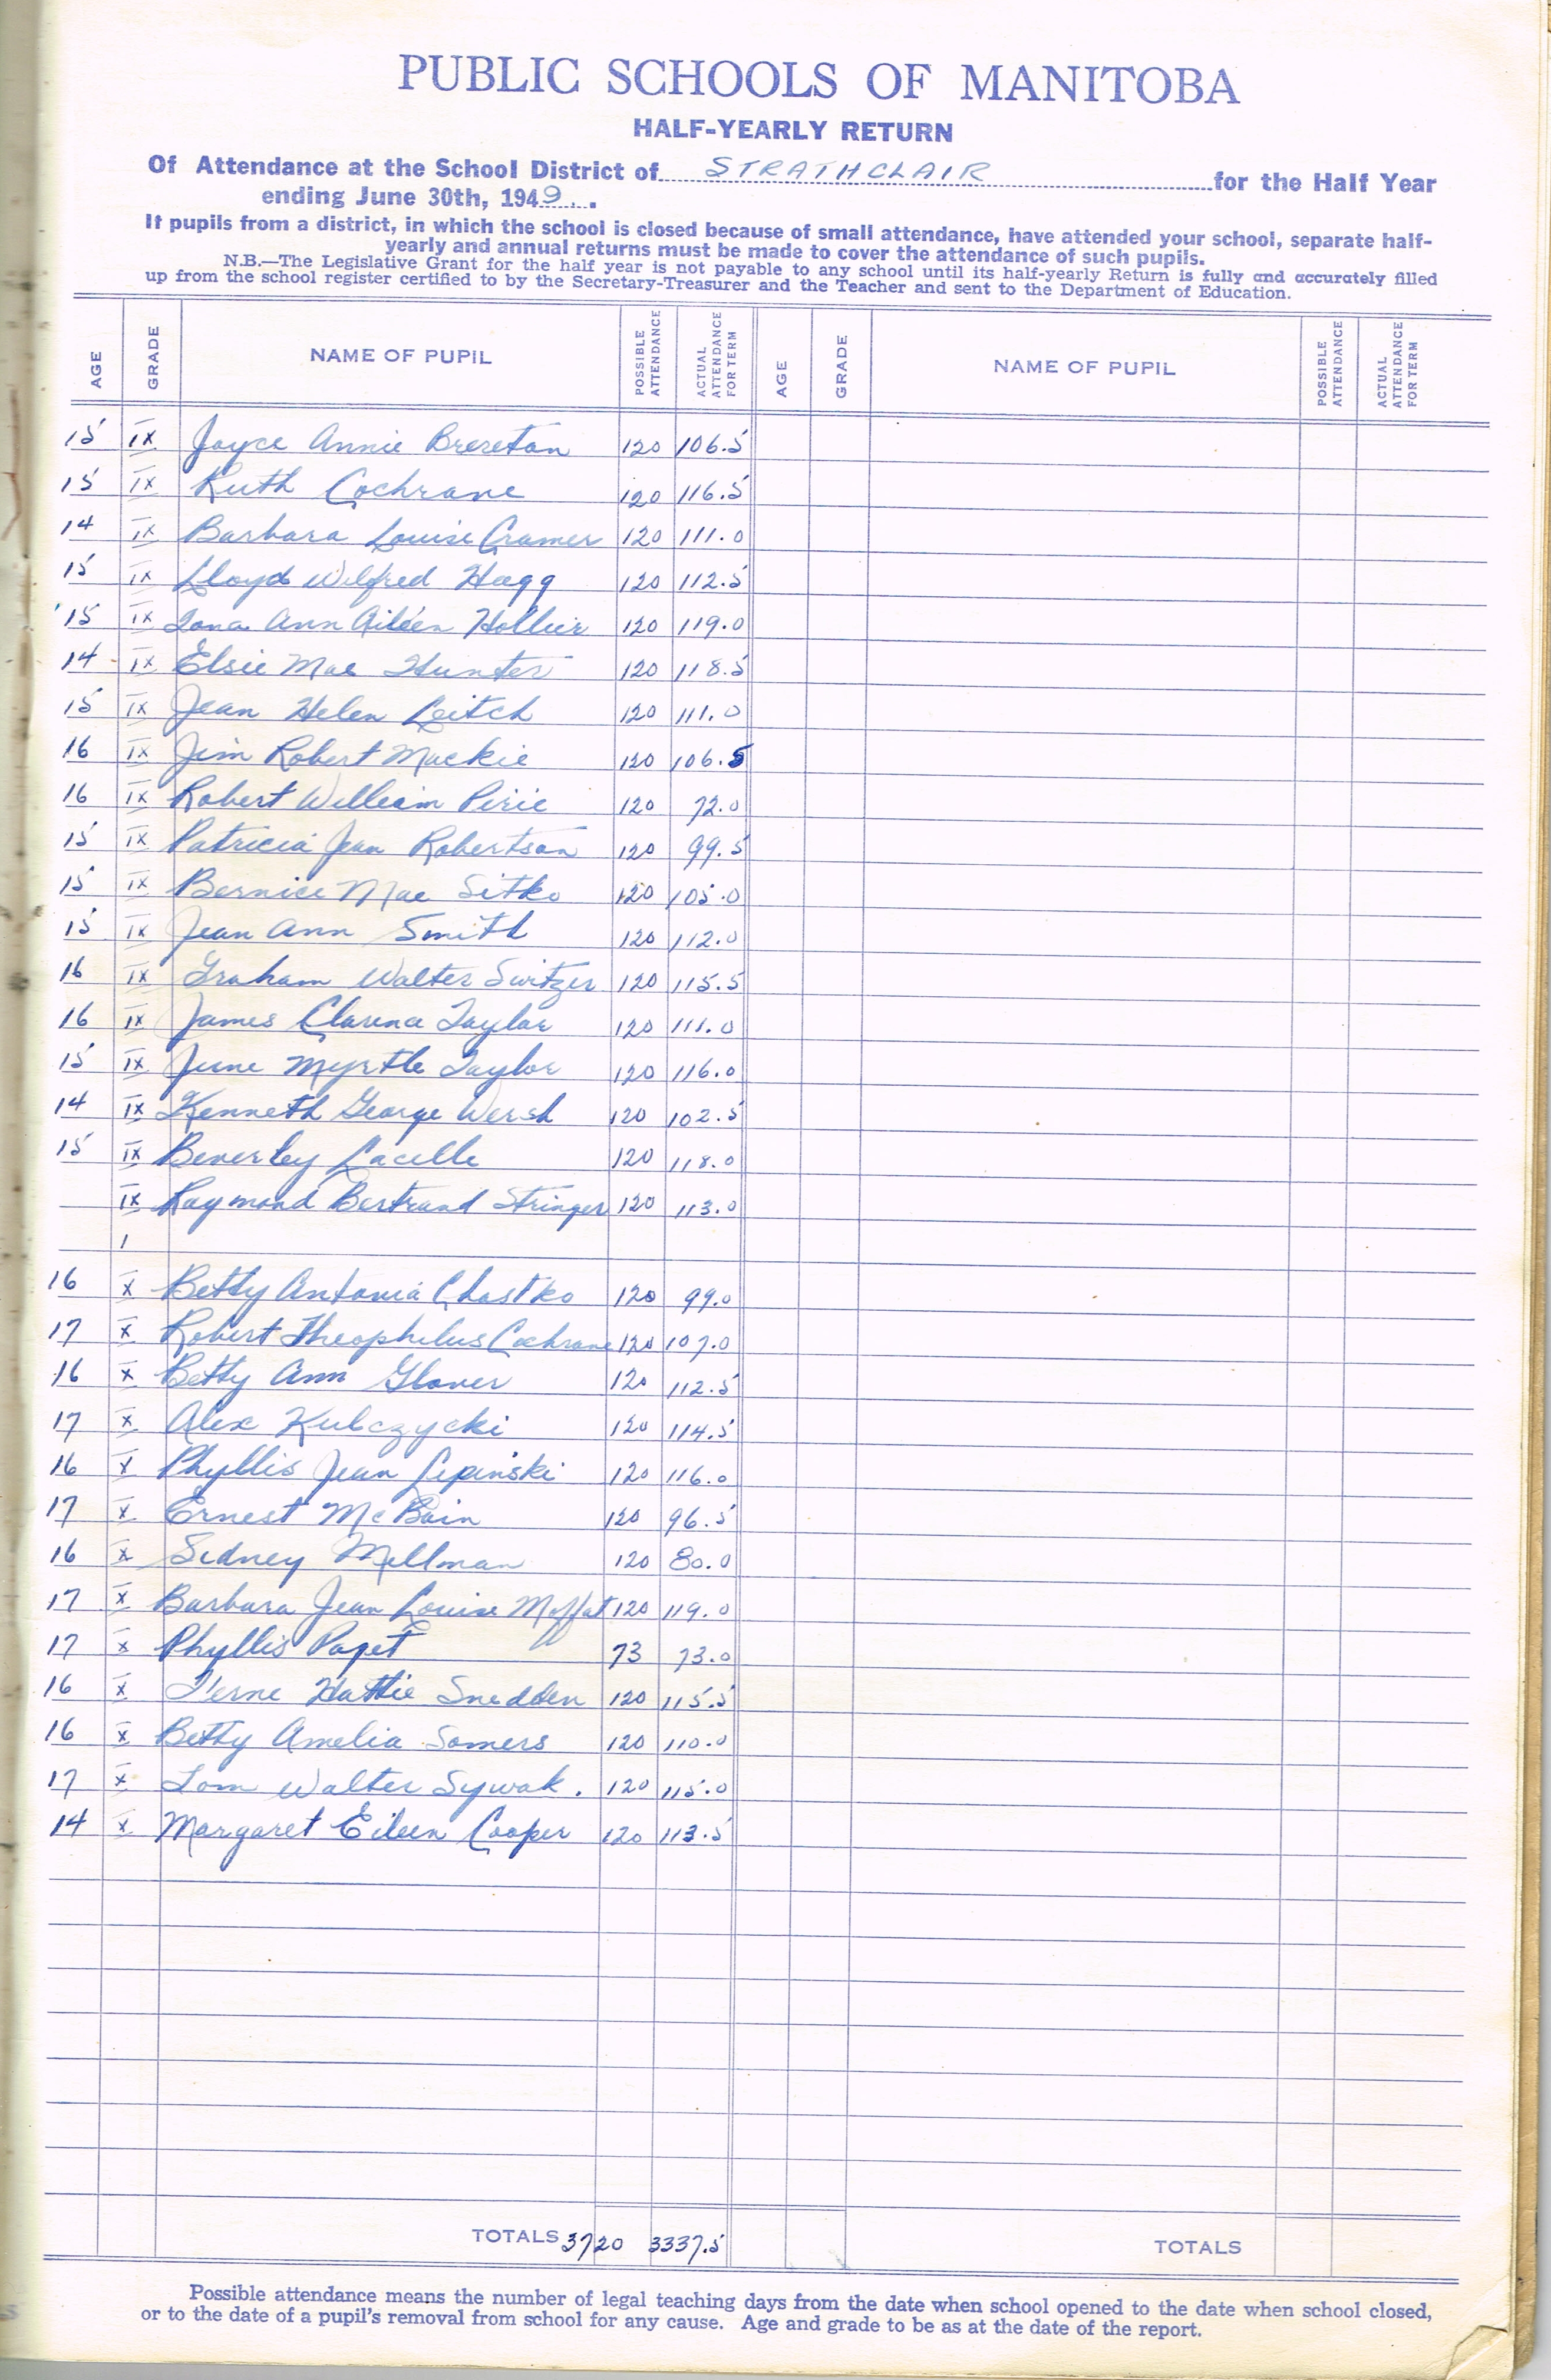 PUBLIC SCHOOLS OF MANITOBA
HALF-YEARLY RETURN
Of Attendance at the School District of STRATHCLAIR for the Half Year
ending June 30th, 1949.
If pupils from a district, in which the school is closed because of small attendance, have attended your school, separate half-
yearly and annual returns must be made to cover the attendance of such pupils.
N.B.—The Legislative Grant for the half year is not payable to any school until its half-yearly Return is fully and accurately filled
up from the school register certified to by the Secretary-Treasurer and the Teacher and sent to the Department of Education.
AGE GRADE NAME OF PUPIL POSSIBLE ATTENDANCE ACTUAL ATTENDANCE FOR TERM AGE GRADE NAME OF PUPIL POSSIBLE ATTENDANCE ACTUAL ATTENDANCE FOR TERM
15 IX Joyce Annie Brereton 120 106.5
15 IX Ruth Cochrane 120 116.5
14 IX Barbara Louise Cramer 120 111.0
15 IX Lloyd Wilfred Hagg 120 112.5
15 IX Iona Ann Aileen Hollier 120 119.0
14 IX Elsie Mae Hunter 120 118.5
15 IX Jean Helen Leitch 120 111.0
16 IX Jim Robert Mackie 120 106.5
16 IX Robert William Pirie 120 72.0
15 IX Patricia Jean Robertson 120 99.5
15 IX Bernice Mae Sitko 120 105.0
15 IX Jean Ann Smith 120 112.0
16 IX Graham Walter Switzer 120 115.5
16 IX James Clarence Taylor 120 111.0
15 IX June Myrtle Taylor 120 116.0
14 IX Kenneth George Wersh 120 102.5
15 IX Beverley Lacelle 120 118.0
IX Raymond Bertrand Stringer 120 113.0
16 X Betty Antonia Chastko 120 99.0
17 X Robert Theophilus Cochrane 120 107.0
16 X Betty Ann Glover 120 112.5
17 X Alex Kulczycki 120 114.5
16 X Phyllis Jean Lepinski 120 116.0
17 X Ernest McBain 120 96.5
16 X Sidney Millman 120 80.0
17 X Barbara Jean Louise Moffat 120 119.0
17 X Phyllis Paget 73 73.0
16 X Verne Hattie Snedden 120 115.5
16 X Betty Amelia Somers 120 110.0
17 X Tom Walter Sywak. 120 115.0
14 X Margaret Eileen Cooper 120 113.5
TOTALS 3720 3337.5 TOTALS
Possible attendance means the number of legal teaching days from the date when school opened to the date when school closed,
or to the date of a pupil's removal from school for any cause. Age and grade to be as at the date of the report.